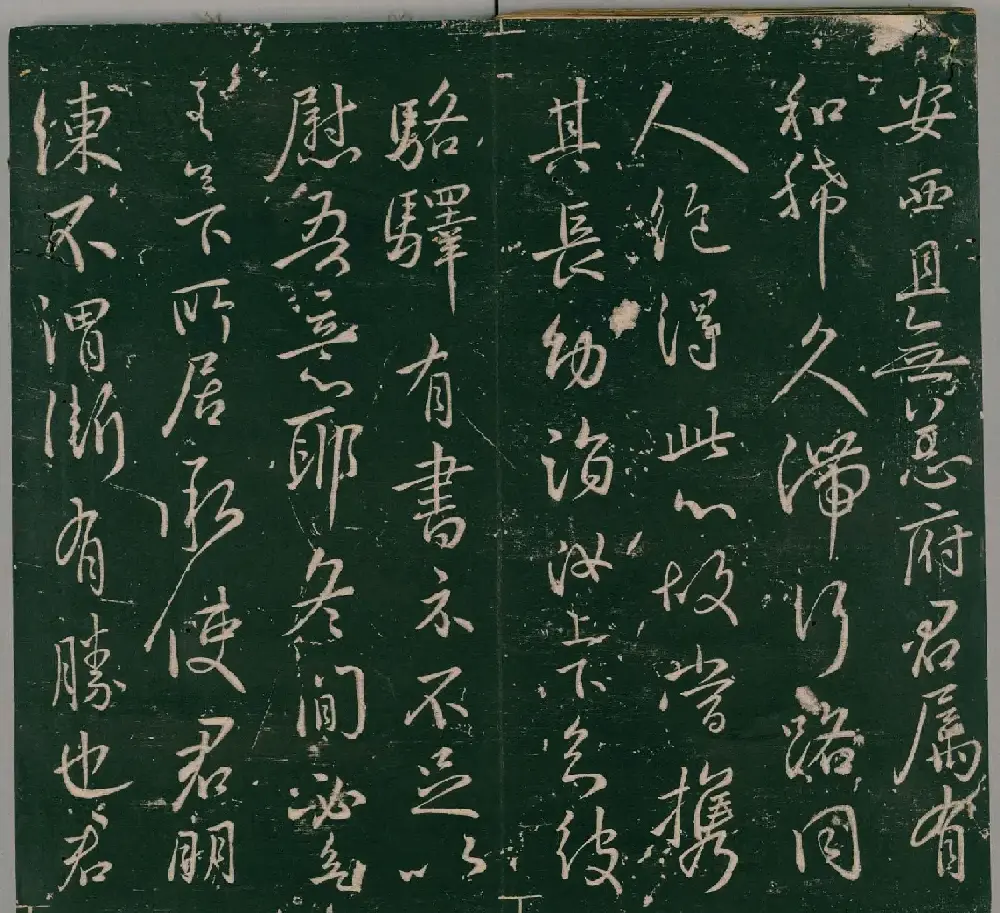 安西且無恙府君屬有
和稀久滯行路同
人絕得此心故當攜
其長幼詣汝上下亦彼
駱驛有書亦不足以
慰吾意心耶冬間必
至足下所居承使君明
練不謂漸有勝也君